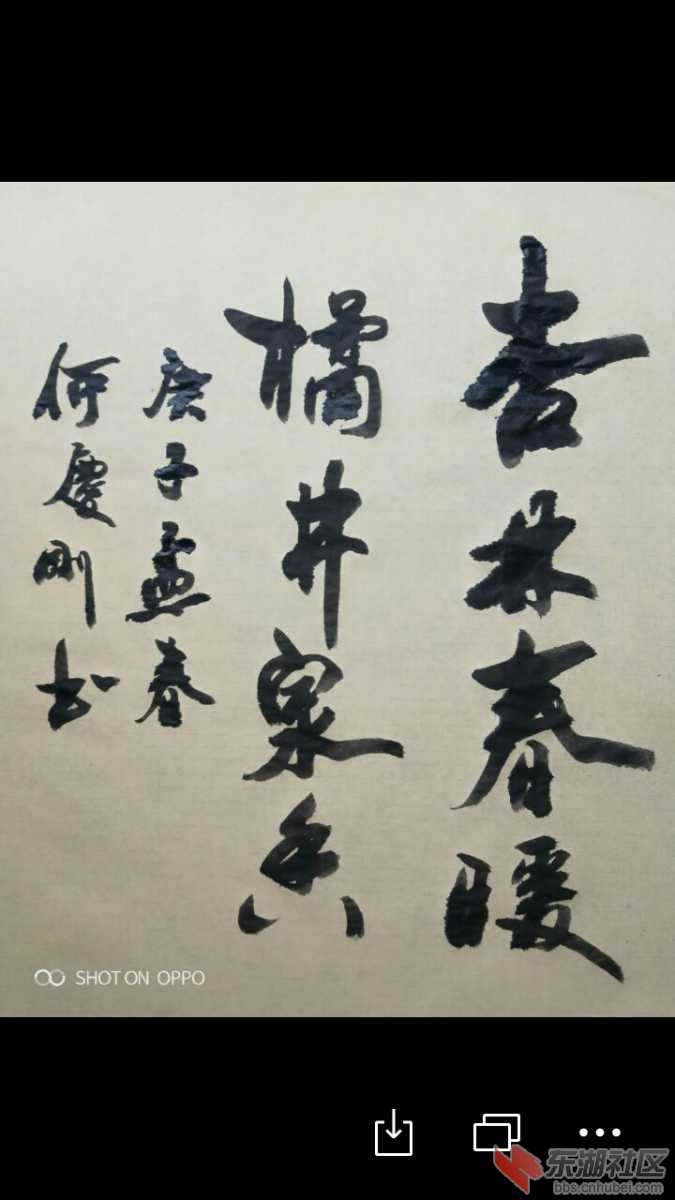 杏林春暖
橘井泉香
庚子孟春
何慶剛书
SHOT ON OPPO
东湖社区
bbs.cnhubei.com